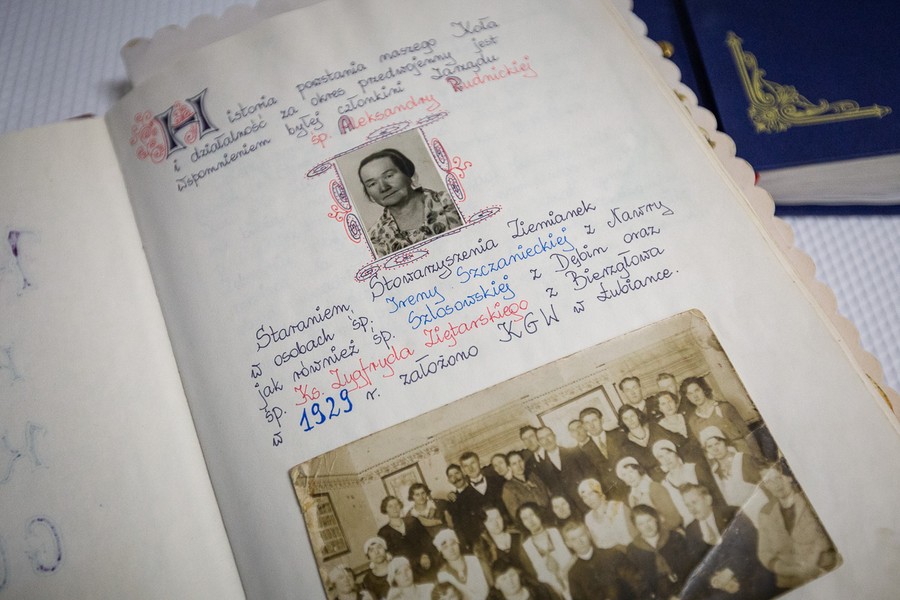 Historia powstania naszego Koła
i działalność za okres przedwojenny jest
wspomnieniem byłej członkini Zarządu
śp. Aleksandry Rudnickiej
Staraniem, Stowarzyszenia Ziemianek
w osobach śp. Ireny Szczanieckiej z Nawry
jak również śp. Szlosowskiej z Dębin oraz
śp. Ks. Zygfryda Ziętarskiego z Bierzgłowa
w 1929 r. założono KGW w Łubiance.